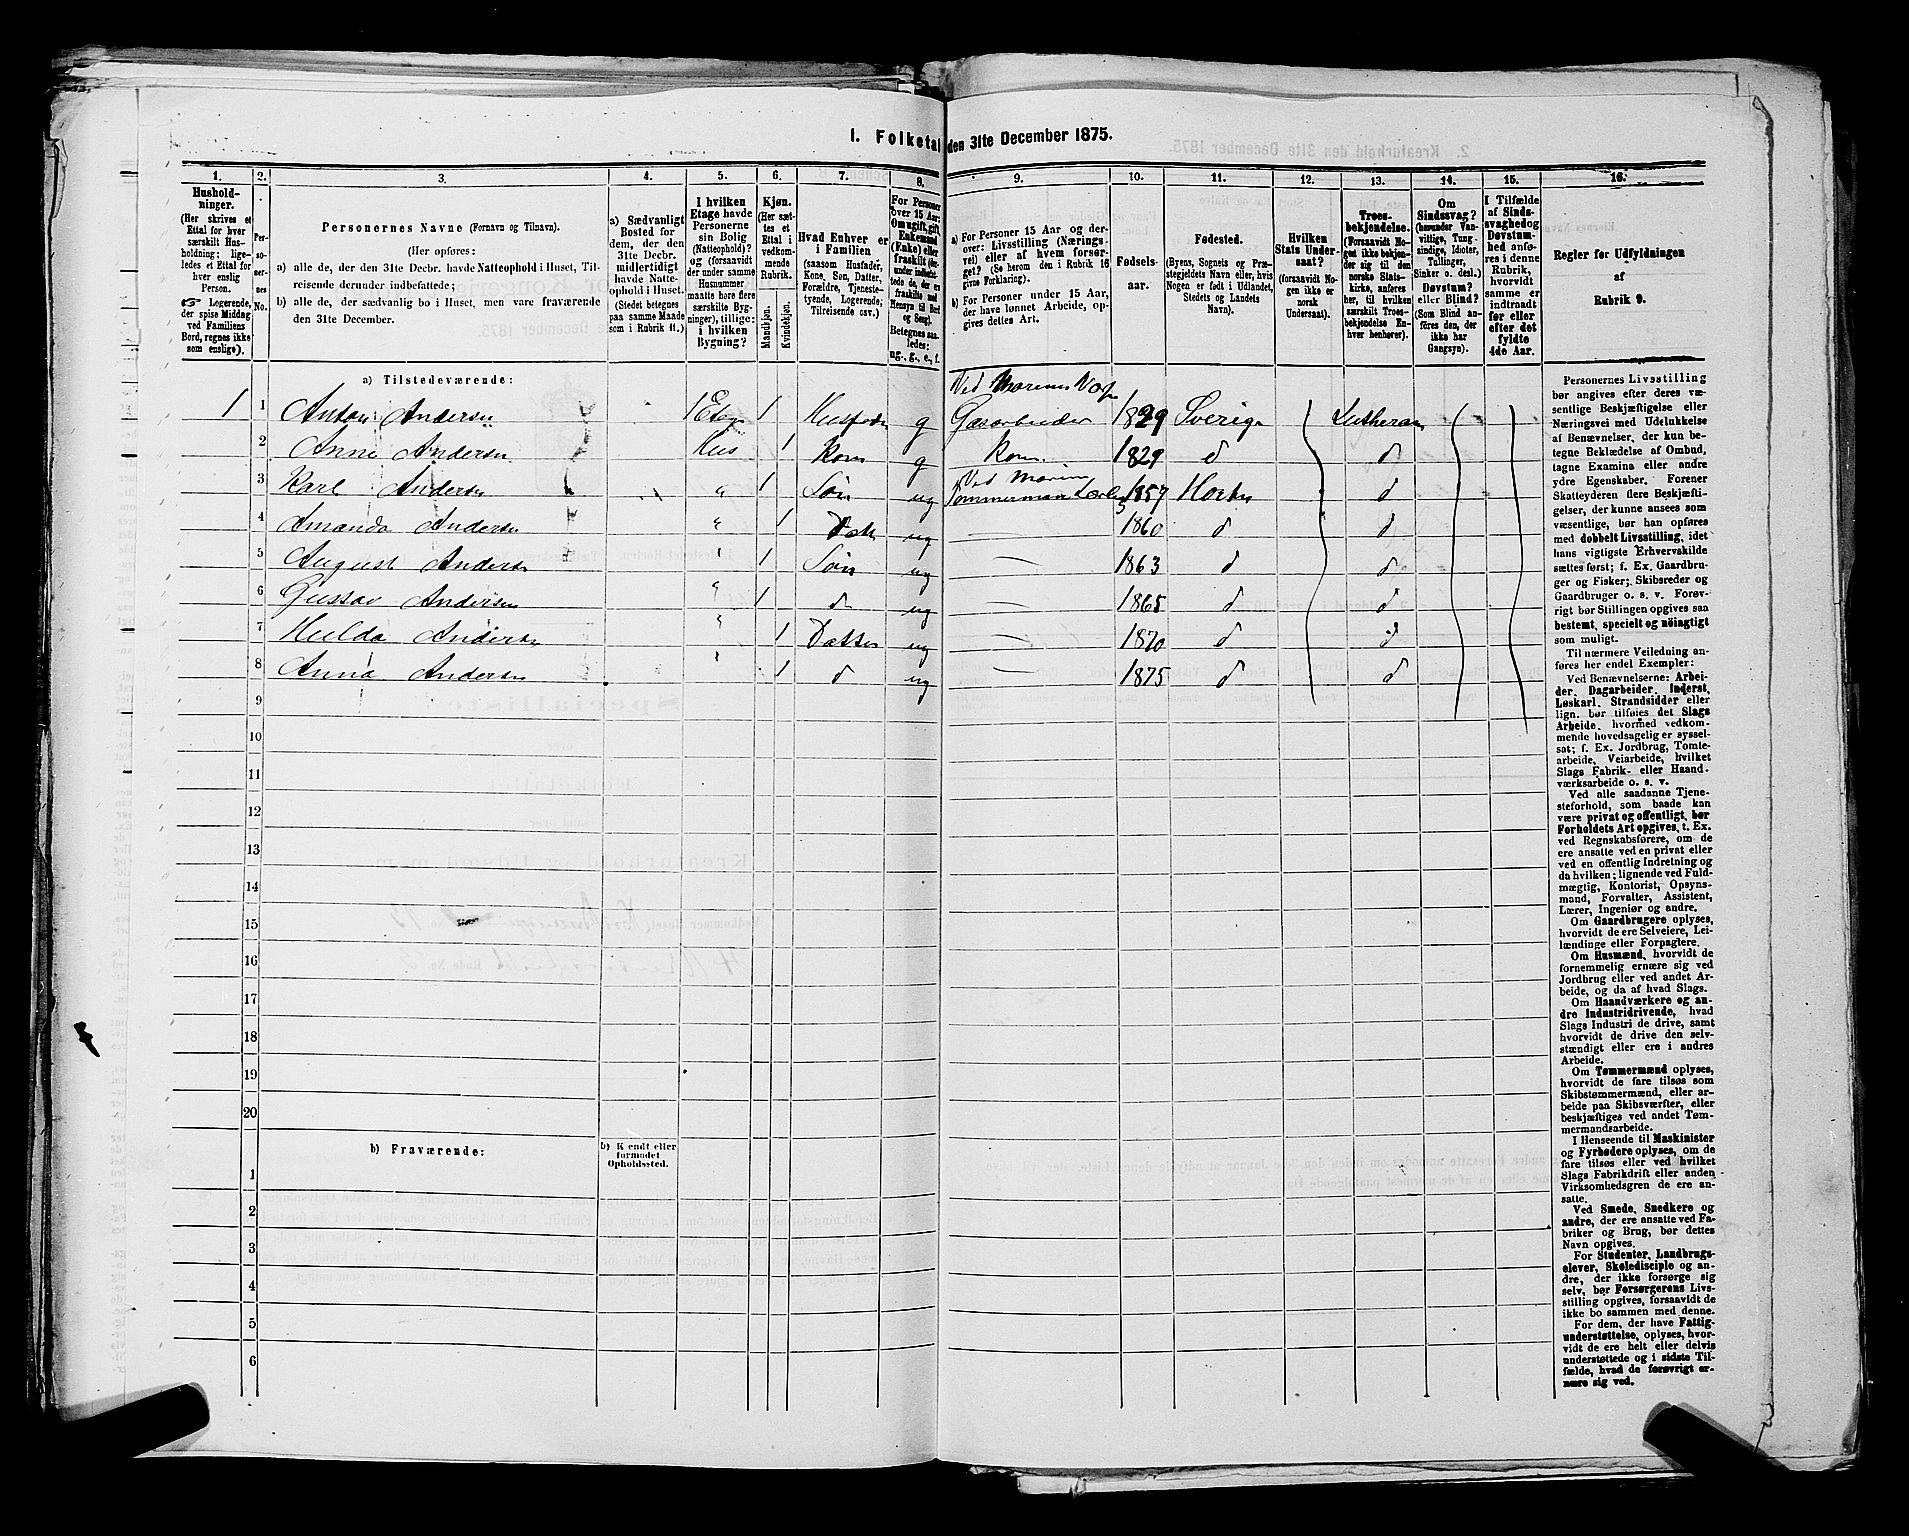 1. Folketal den 31te December 1875.
1. 2. 3. 4. 5. 6. 7. 8. 9. 10. 11. 12. 13. 14. 15. 16.
Hushold-
ninger.
(Her skrives et
Ettal for hver
særskilt Hus-
holdning; lige-
ledes et Ettal for
enslig
Person.
☞ Logerende,
der spise Middag
ved Familiens
Bord, regnes ikke
som enslige).
Per-
so-
ner-
nes
No.
Personernes Navne (Fornavn og Tilnavn).
(Her opføres:
a) alle de, der den 31te Decbr. havde Natteophold i Huset, Til-
reisende derunder indbefattede;
b) alle de, der sædvanlig bo i Huset, men vare fraværende
den 31te December.
a) Sædvanligt
Bosted for
dem, der den
31te Decbr.
midlertidigt
havde Natte-
ophold i Huset.
(Stedet betegnes
paa samme Maade
som i Rubrik 11.)
I hvilken
Etage havde
Personerne
sin Bolig
(Natteophold)?
og (forsaavidt
der under samme
Husnummer
maatte høre flere
særskilte Byg-
ninger), tillige:
i hvilken
Bygning?
Kjøn.
(Her sæt-
tes et
Ettal i
vedkom-
mende
Rubrik.
Mandkjøn.
Kvindekjøn.
Hvad Enhver er
i Familien
(saasom Husfader,
Kone, Søn, Datter,
Forældre, Tjeneste-
tyende, Logerende,
Tilreisende osv.)
For Personer
over 15 Aar:
Om ugift, gift,
Enkemand
(Enke) eller
fraskilt
Betegnes saa-
ledes:
ug., g., e., f.
a) For Personer 15 Aar og der-
over: Livsstilling (Nærings-
vei) eller af hvem forsør-
get? (Se herom den i Rubrik 16
givne Forklaring).
b) For Personer under 15 Aar,
der have lønnet Arbeide, op-
gives dettes Art.
Fødsels-
aar.
Fødested.
(Byens, Sognets og Præ-
stegjeldets Navn eller, hvis
Nogen er født i Udlandet,
Stedets og Landets
Navn).
Hvilken
Stats Under-
saat?
(forsaavidt No-
gen ikke er
norsk
Undersaat).
Troes-
bekjendelse.
(Forsaavidt No-
gen ikke bekjen-
der sig til den
norske Stats-
kirke, anføres
her, til hvilken
særskilt Troes-
bekjendelse En-
hver henhører).
Om
Sindssvag?
(herunder Van-
vittige, Tung-
sindige, Idioter,
Tullinger,
Sinker o. desl.)
Døvstum?
eller Blind?
(Som Blind an-
føres den, der
ikke har
Gangsyn).
I Tilfælde
af Sinds-
svaghed og
Døvstum-
hed anfø-
res i denne
Rubrik,
hvorvidt
samme er
indtraadt
før eller
efter det
fyldte
4de Aar.
Regler for Udfyldningen
af
Rubrik 9.
a) Tilstedeværende:
Ved Marinens
1 1 Anton Andersen 1 Etag 1 Husfader g Gasarbeider 1829 Sverige Lutheran
2 Anne Andersen Hus 1 Kone g Kone 1829 d d
Ved Marinen
3 Karl Andersen " 1 Søn ug Tømmermand 1857 Horten d
4 Amanda Andersen " 1 Datt ug — 1860 d d
5 August Andersen " 1 Søn ug — 1863 d d
6 Gustav Andersen " 1 d ug — 1865 d d
7 Hulda Andersen " 1 Datter ug — 1870 d d
8 Anna Andersen " 1 d ug — 1875 d d
9
10
11
12
13
14
15
16
17
18
19
20
b) Fraværende:
b) Kjendt eller
formodet
Opholdssted.
1
2
3
4
5
6
Personernes Livsstilling
bør angives efter deres væ-
sentlige Beskjæftigelse eller
Næringsvei med Udelukkelse
af Benævnelser, der kun be-
tegne Beklædelse af Ombud,
tagne Examina eller andre
ydre Egenskaber. Forener
Skatteyderen flere Beskjæfti-
gelser, der kunne ansees som
væsentlige, bør han opføres
med dobbelt Livsstilling, idet
hans vigtigste Erhvervskilde
sættes først; f. Ex. Gaardbru-
ger og Fisker; Skibsreder og
Gaardbruger o. s. v. Forøv-
rigt bør Stillingen opgives saa
bestemt, specielt og nøiagtigt
som muligt.
Til nærmere Veiledning an-
føres her endel Exempler:
Ved Benævnelserne: Arbei-
der, Dagarbeider, Inderst,
Løskarl, Strandsidder eller
lign. bør tilføies det Slags
Arbeide, hvormed vedkom-
mende hovedsagelig er syssel-
sat; f. Ex. Jordbrug, Tomte-
arbeide, Veiarbeide, hvilket
Slags Fabrik- eller Haand-
værksarbeide o. s. v.
Ved alle saadanne Tjene-
steforhold, som baade kan
være privat og offentligt, bør
Forholdets Art opgives, t. Ex.
ved Regnskabsførere, om de
ere ansatte ved en privat eller
ved en offentlig Indretning og
da hvilken; lignende ved Fuld-
mægtig, Kontorist, Opsyns-
mand, Forvalter, Assistent,
Lærer, Ingeniør og andre.
Om Gaardbrugere oplyses,
hvorvidt de ere Selveiere, Lei-
lændinge eller Forpagtere.
Om Husmænd, hvorvidt de
fornemmelig ernære sig ved
Jordbrug eller ved andet Ar-
beide, og da af hvad Slags.
Om Haandværkere og an-
dre Industridrivende, hvad
Slags Industri de drive, samt
hvorvidt de drive den selv-
stændigt eller ere i andres
Arbeide.
Om Tømmermænd oplyses,
hvorvidt de fare tilsøs som
Skibstømmermænd, eller ar-
beide paa Skibsværfter, eller
beskjæftiges ved andet Tøm-
mermandsarbeide.
I Henseende til Maskinister
og Fyrbødere oplyses, om de
fare tilsøs eller ved hvilket
Slags Fabrikdrift eller anden
Virksomhedsgren de ere an-
satte.
Ved Smede, Snedkere og
andre, der ere ansatte ved Fa-
briker og Brug, bør dettes
Navn opgives.
For Studenter, Landbrugs-
elever, Skoledisciple og an-
dre, der ikke forsørge sig
selv, bør Forsørgerens Livs-
stilling opgives, forsaavidt de
ikke bo sammen med denne.
For dem, der have Fattig-
understøttelse, oplyses, hvor-
vidt de ere helt eller delvis
understøttede og i sidste Til-
fælde, hvad de forøvrigt er-
nære sig ved.